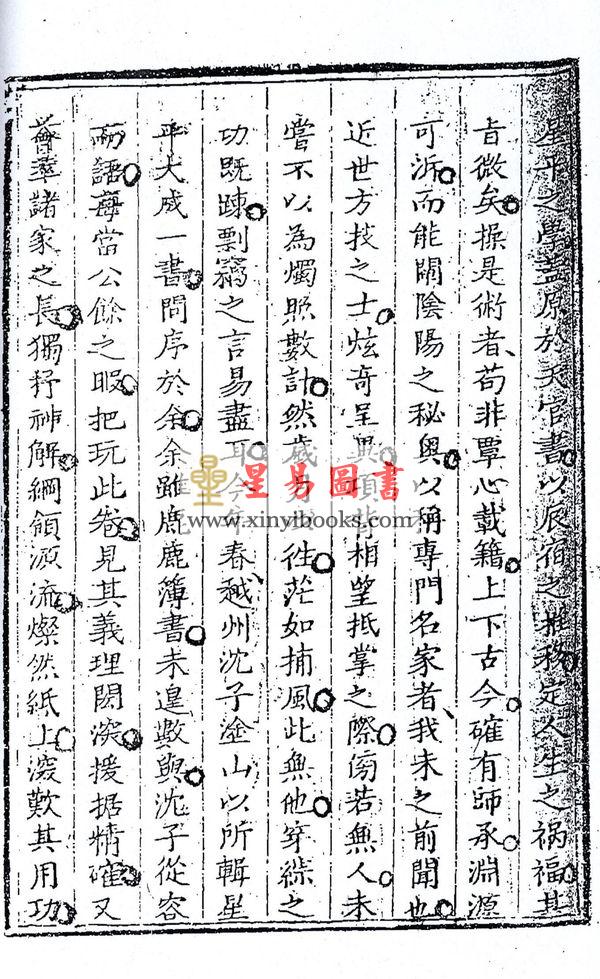 星平之學蓋原於天官書以辰宿之推移定人生之禍福其
旨微矣操是術者苟非覃心載籍上下古今確有師承淵源
可泝而能闡陰陽之秘奥以稱專門名家者我未之前聞也
近世方技之士炫奇呈異項背相望抵掌之際傍若無人未
嘗不以為燭照數計然歲易 徃茫如捕風此無他穿綜之
功既踈剽竊之言易盡耳今年春越州沈子塗山以所輯星
平大成一書問序於余余雖鹿鹿簿書未遑數與沈子從容
而語每當公餘之暇把玩此卷見其義理閎深援据精確又
薈萃諸家之長獨抒神解綱領源流燦然紙上深歎其用功
星易圖書
www.xinyibooks.com